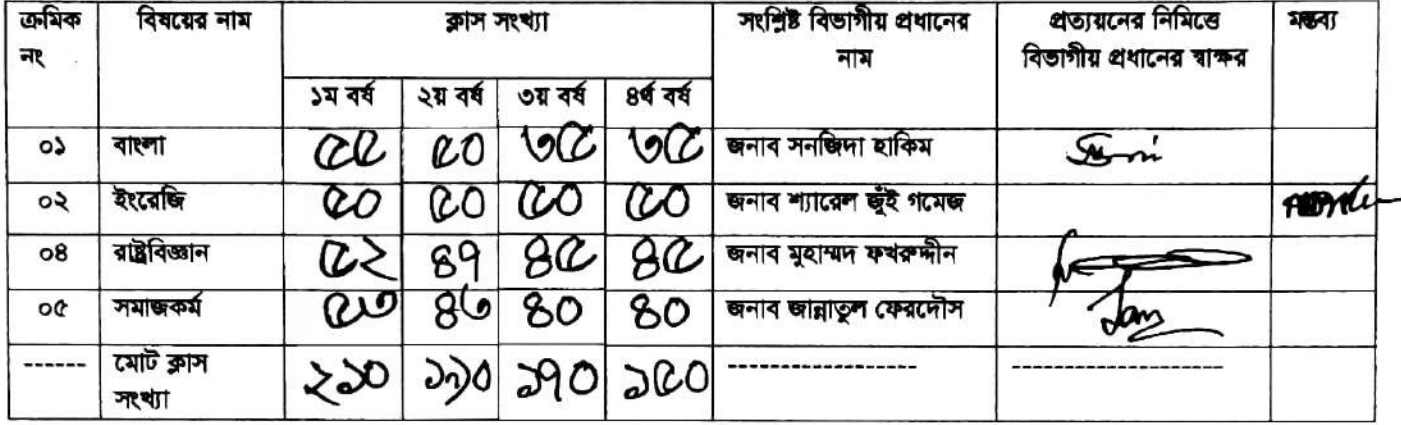 ক্রমিক নং | বিষয়ের নাম | ক্লাস সংখ্যা | সংশ্লিষ্ট বিভাগীয় প্রধানের নাম | প্রত্যয়নের নিমিত্তে বিভাগীয় প্রধানের স্বাক্ষর | মন্তব্য
১ম বর্ষ | ২য় বর্ষ | ৩য় বর্ষ | ৪র্থ বর্ষ
০১ | বাংলা | ৫৫ | ৫০ | ৩৫ | ৩৫ | জনাব সনজিদা হাকিম
০২ | ইংরেজি | ৫০ | ৫০ | ৫০ | ৫০ | জনাব শ্যারেল জুঁই গমেজ
০৪ | রাষ্ট্রবিজ্ঞান | ৫২ | ৪৭ | ৪৫ | ৪৫ | জনাব মুহাম্মদ ফখরুদ্দীন
০৫ | সমাজকর্ম | ৫৩ | ৪৩ | ৪০ | ৪০ | জনাব জান্নাতুল ফেরদৌস
------ | মোট ক্লাস সংখ্যা | ২১০ | ১৯০ | ১৭০ | ১৫০ | ------------------ | ----------------------